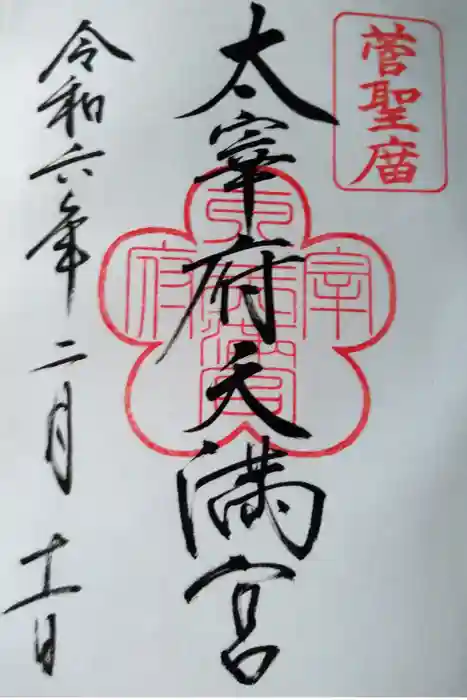 菅聖庿
太宰府天満宮
令和六年二月十一日
宰
府